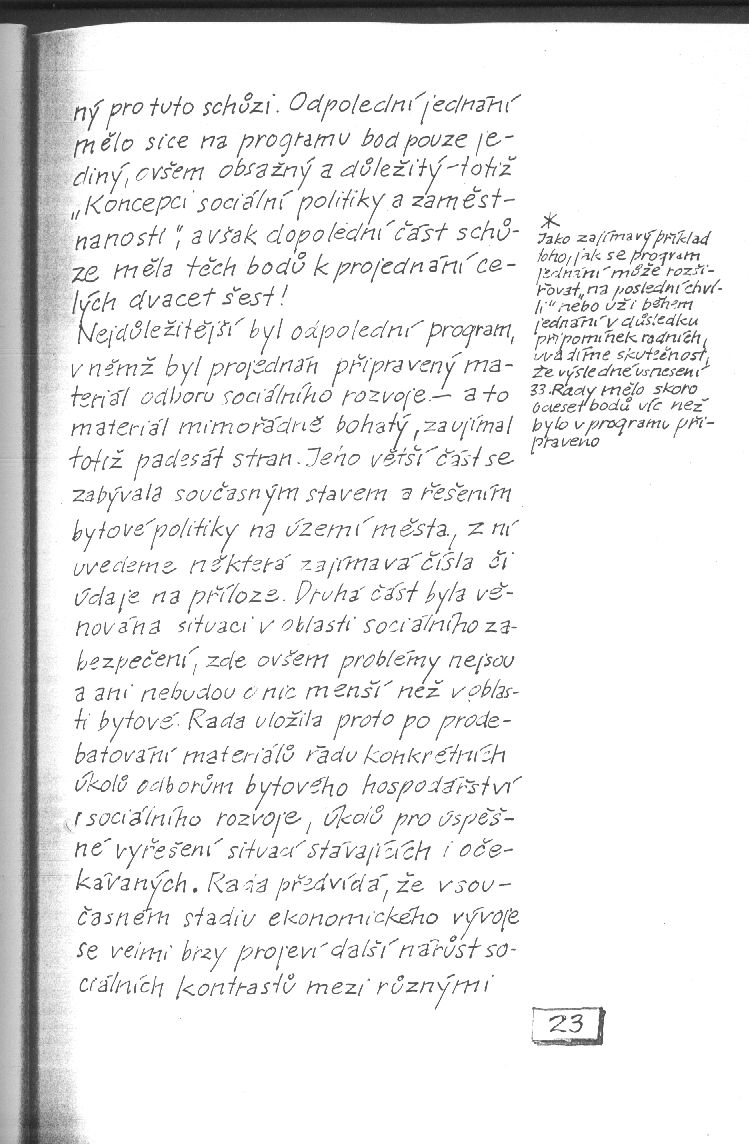 ný pro tuto schůzi. Odpolední jednání
mělo sice na programu bod pouze je-
diný, ovšem obsažný a důležitý – totiž
„Koncepci sociální politiky a zaměst-
nanosti", avšak dopolední část schů-
ze měla těch bodů k projednání ce-
lých dvacet šest!
Nejdůležitější byl odpolední program,
v němž byl projednán připravený ma-
teriál odboru sociálního rozvoje – a to
materiál mimořádně bohatý, zaujímal
totiž padesát stran. Jeho větší část se
zabývala současným stavem a řešením
bytové politiky na území města, z ní
uvedeme některá zajímavá čísla či
údaje na příloze. Druhá část byla vě-
nována situaci v oblasti sociálního za-
bezpečení, zde ovšem problémy nejsou
a ani nebudou o nic menší než v oblas-
ti bytové. Rada uložila proto po prode-
batování materiálů řadu konkrétních
úkolů odborům bytového hospodářství
i sociálního rozvoje, úkolů pro úspěš-
né vyřešení situací stávajících i oče-
kávaných. Rada předvídá, že v sou-
časném stadiu ekonomického vývoje
se velmi brzy projeví další nárůst so-
ciálních kontrastů mezi různými
*
Jako zajímavý příklad
toho, jak se program
jednání může rozši-
řovat „na poslední chví-
li" nebo už i během
jednání v důsledku
připomínek radních,
uvádíme skutečnost,
že výsledné usnesení
33. Rady mělo skoro
o deset bodů víc než
bylo v programu při-
praveno
23